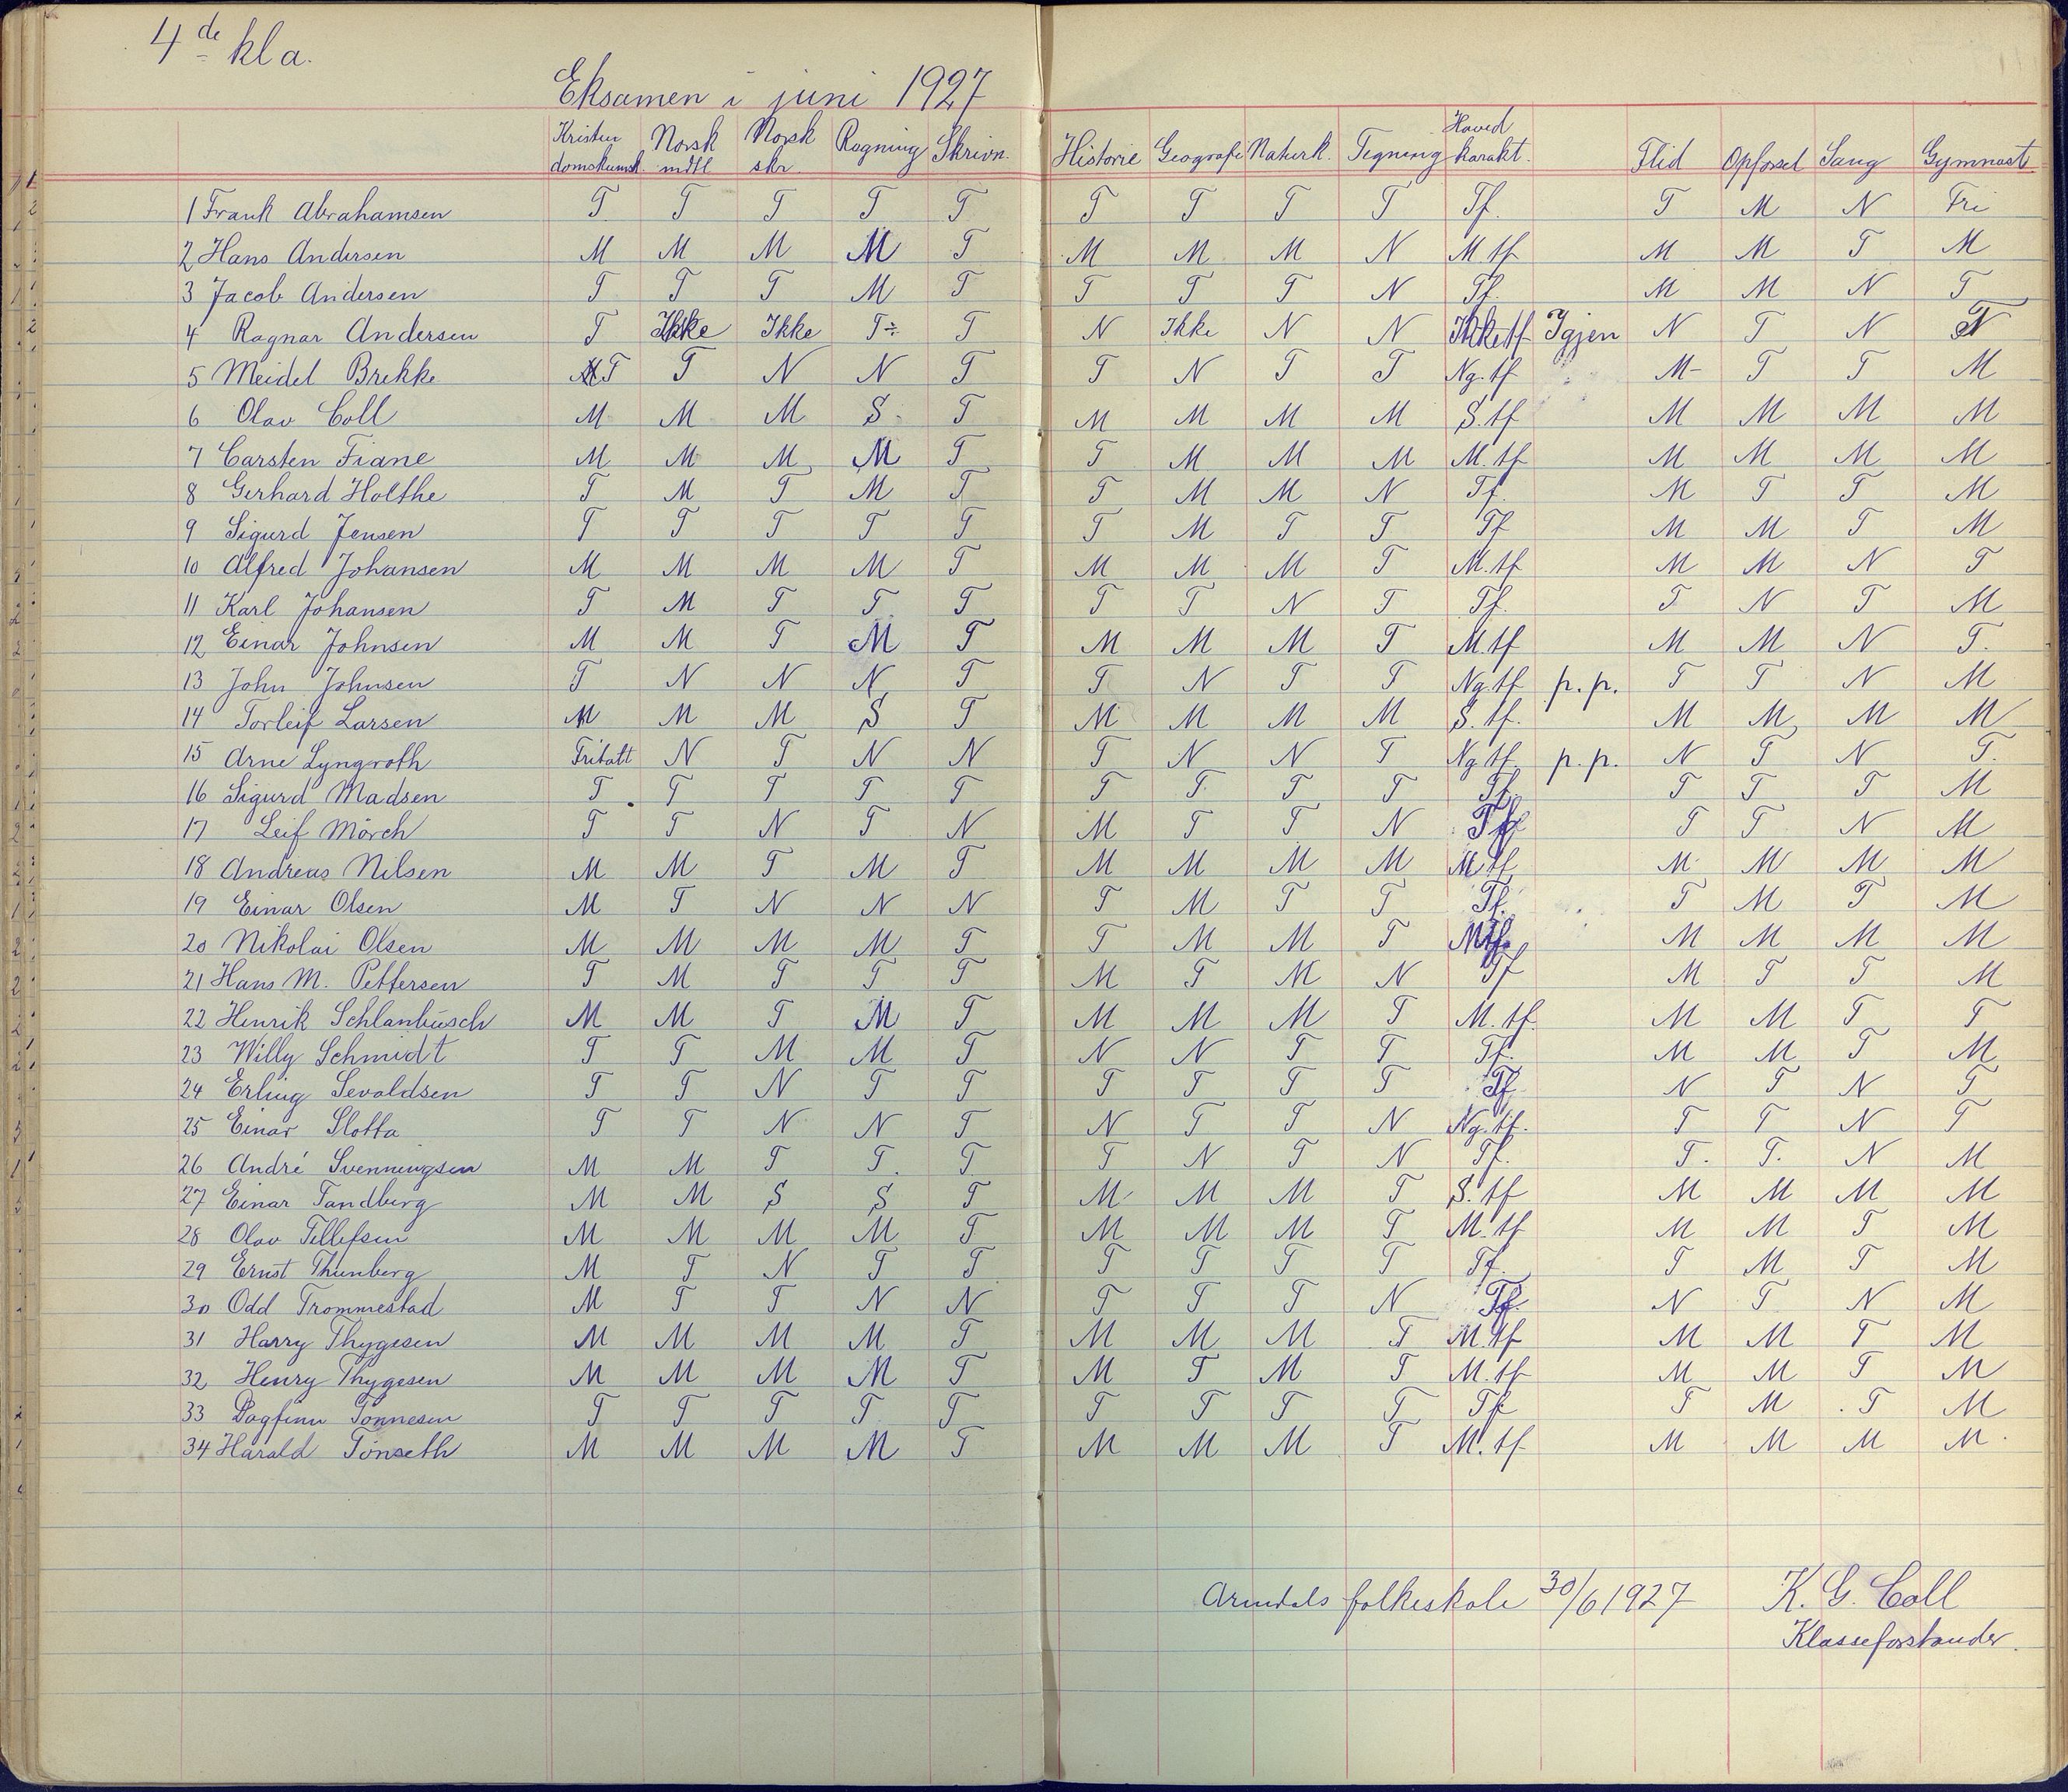 4de kl a.
Eksamen i juni 1927
Kristendomskunsk. Norsk mdtl Norsk skr. Rægning Skrivn. Historie Geografi Naturk. Tegning Hovedkarakt. Flid Opførsel Sang Gymnast.
1 Frank Abrahamsen T T T T T T T T T Tf. T M N Fri
2 Hans Andersen M M M M T M M M N M.tf M M T M
3 Jacob Andersen T T T M T T T T N Tf. M M N T
4 Ragnar Andersen T Ikke Ikke T÷ T N Ikke N N Ikke tf Igjen N T N N
5 Meidel Brekke T T N N T T N T T Ng.tf M- T T M
6 Olav Coll M M M S T M M M M S.tf M M M M
7 Carsten Fiane M M M M T T M M M M.tf M M M M
8 Gerhard Holthe T M T M T T M M N Tf. M T T M
9 Sigurd Jensen T T T T T T M T T Tf M M T M
10 Alfred Johansen M M M M T M M M T M.tf M M N T
11 Karl Johansen T M T T T T T N T Tf. T N T M
12 Einar Johnsen M M T M T M M M T M.tf M M N T.
13 John Johnsen T N N N T T N T T Ng.tf p.p. T T N M
14 Torleif Larsen M M M S T M M M M S.tf. M M M M
15 Arne Lyngroth Fritatt N T N N T N N T Ng.tf p.p. N T N T.
16 Sigurd Madsen T T T T T T T T T Tf. T T T M
17 Leif Mørch T T N T N M T T N Tf T T N M
18 Andreas Nilsen M M T M T M M M M M tf M M M M
19 Einar Olsen M T N N N T M T T Tf. T M T M
20 Nikolai Olsen M M M M T T M M T Mtf. M M M M
21 Hans M. Pettersen T M T T T M T M N Tf M T T M
22 Henrik Schlanbusch M M T M T M M M T M.tf. M M T T
23 Willy Schmidt T T M M T N N T T Tf. M M T M
24 Erling Sevaldsen T T N T T T T T T Tf N T N T
25 Einar Slotta T T N N T N T T N Ng.tf. T T N T
26 André Svenningsen M M T T. T T N T N Tf. T. T. N M
27 Einar Tandberg M M S S T M M M T S.tf M M M M
28 Olav Tellefsen M M M M T M M M T M.tf M M T M
29 Ernst Thunberg M T N T T T T T T Tf. T M T M
30 Odd Trommestad M T T N N T T T N Tf. N T N M
31 Harry Thygesen M M M M T M M M T M.tf M M T M
32 Henry Thygesen M M M M T M T M T M.tf M M T M
33 Dagfinn Tønnesen T T T T T T T T T Tf T M T M
34 Harald Tønseth M M M M T M M M T M.tf M M M M
Arendals folkeskole 30/6 1927 K. G. Coll
Klasseforstander.